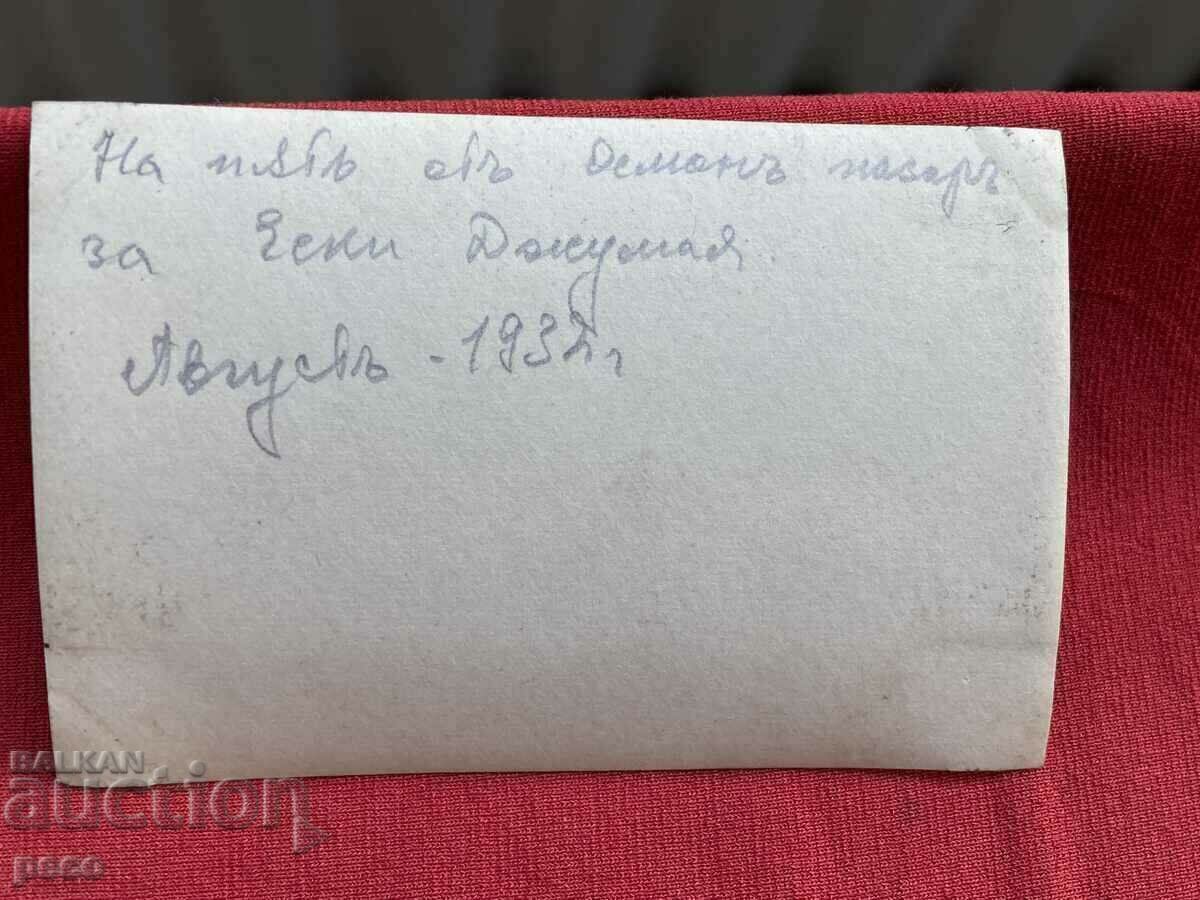 На пѫть отъ Османъ пазаръ
за Ески Джумая.
Августъ - 1932 г
BALKAN
auction
peco